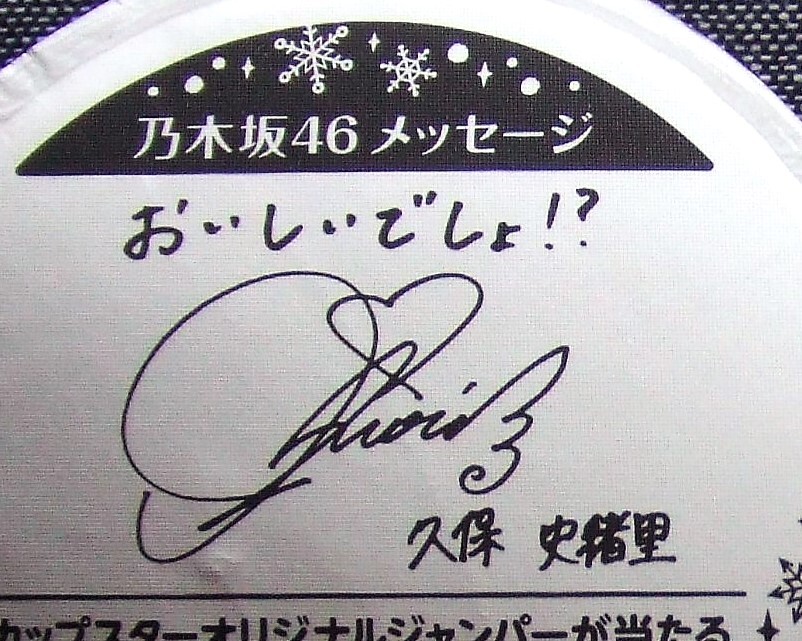 乃木坂46 メッセージ
おいしいでしょ!?
久保 史緒里
カップスターオリジナルジャンパーが当たる